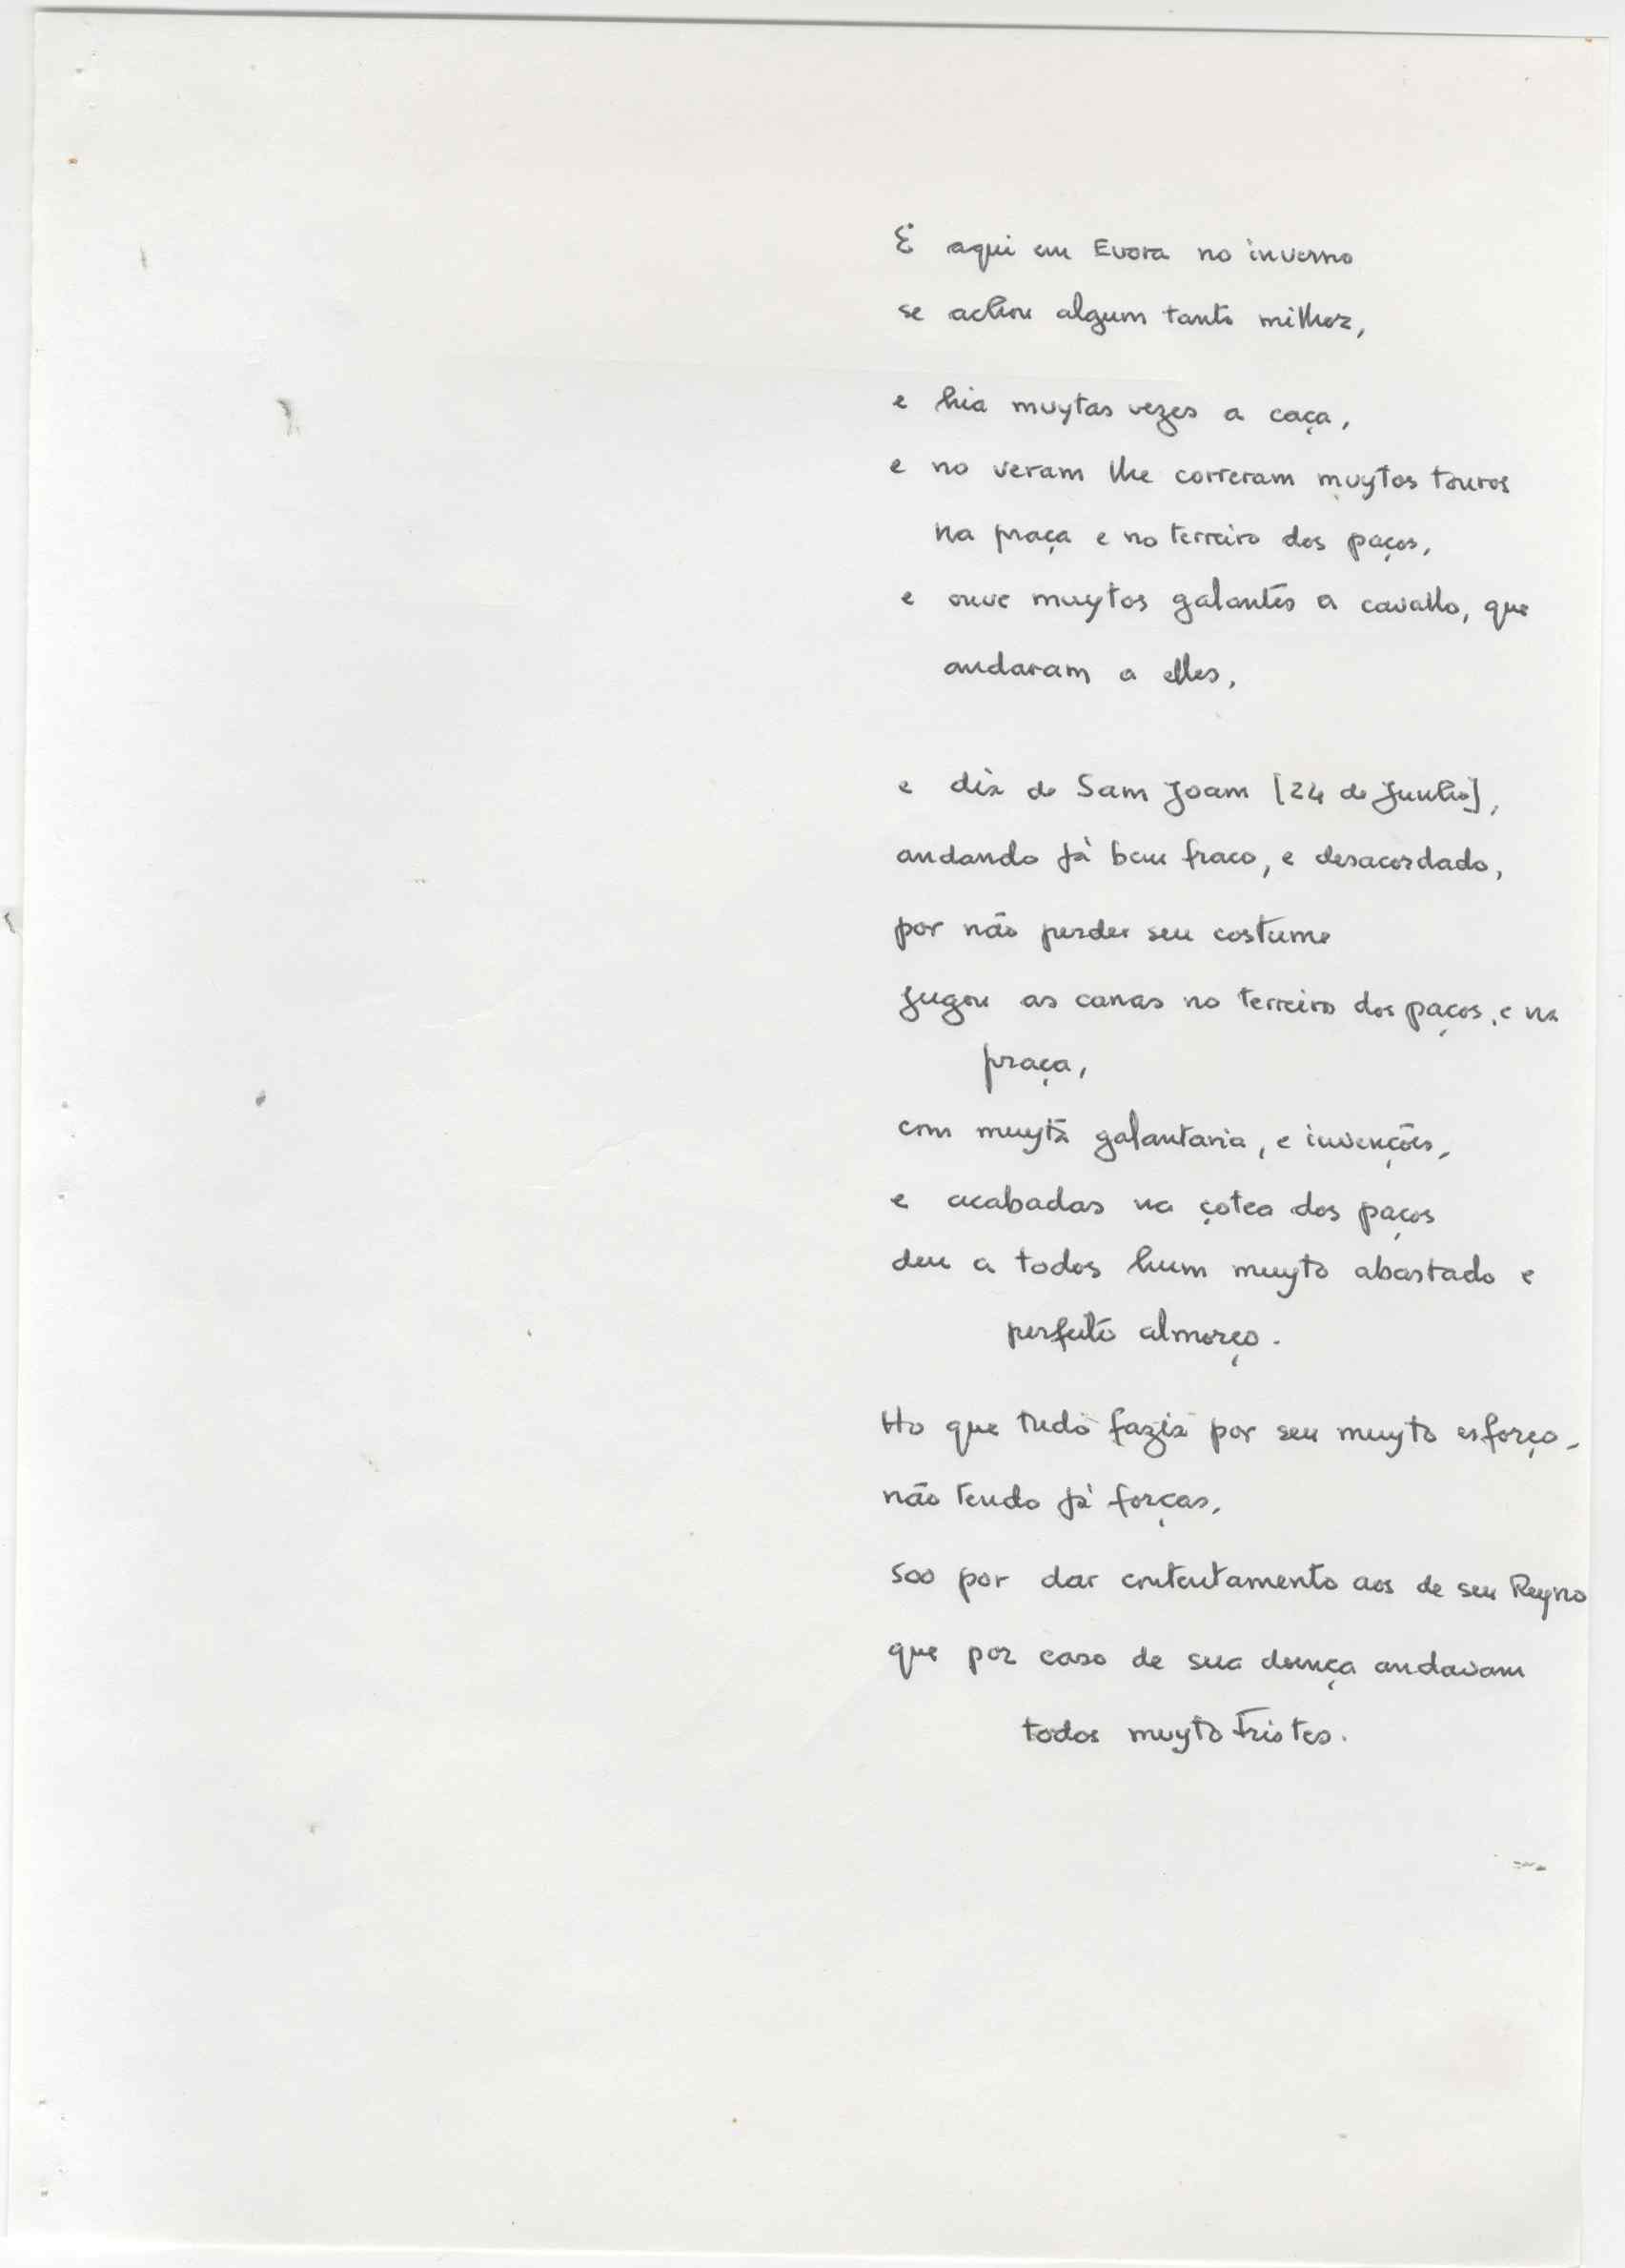 E aqui em Evora no inverno
se achou algum tanto milhor,
e hia muytas vezes a caça,
e no veram lhe correram muytos touros
na praça e no terreiro dos paços,
e ouve muytos galantes a cavallo, que
andaram a elles,
e dia de Sam Joam [24 de Junho],
andando já bem fraco, e desacordado,
por não perder seu costume
jugou as canas no terreiro dos paços, e na
praça,
com muyta galantaria, e invenções,
e acabadas na çotea dos paços
deu a todos hum muyto abastado e
perfeito almorço.
Ho que tudo fazia por seu muyto esforço,
não tendo já forças,
soo por dar contentamento aos de seu Reyno
que por caso de sua doença andavam
todos muyto tristes.